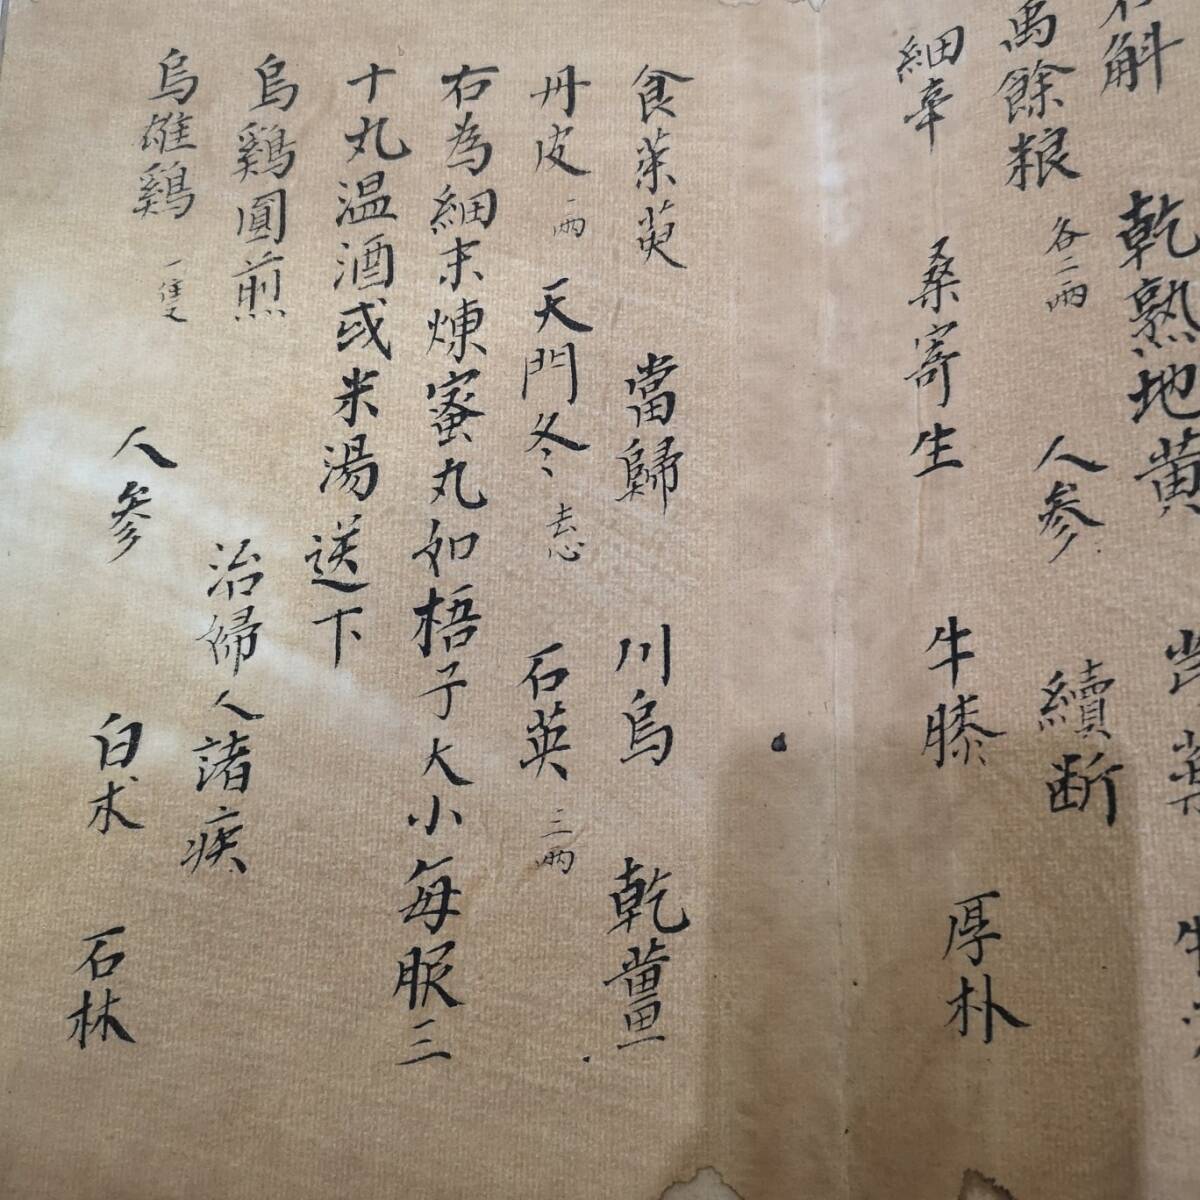 斛 乾熟地黄
禹餘粮 各二兩 人参 續断
細辛 桑寄生 牛膝 厚朴
食茱萸 當歸 川烏 乾薑
丹皮 一兩 天門冬 去心 石英 三兩
右為細末煉蜜丸如梧子大小每服三
十丸温酒或米湯送下
烏鷄圓煎 治婦人諸疾
烏雄鷄 一隻 人参 白术 石林